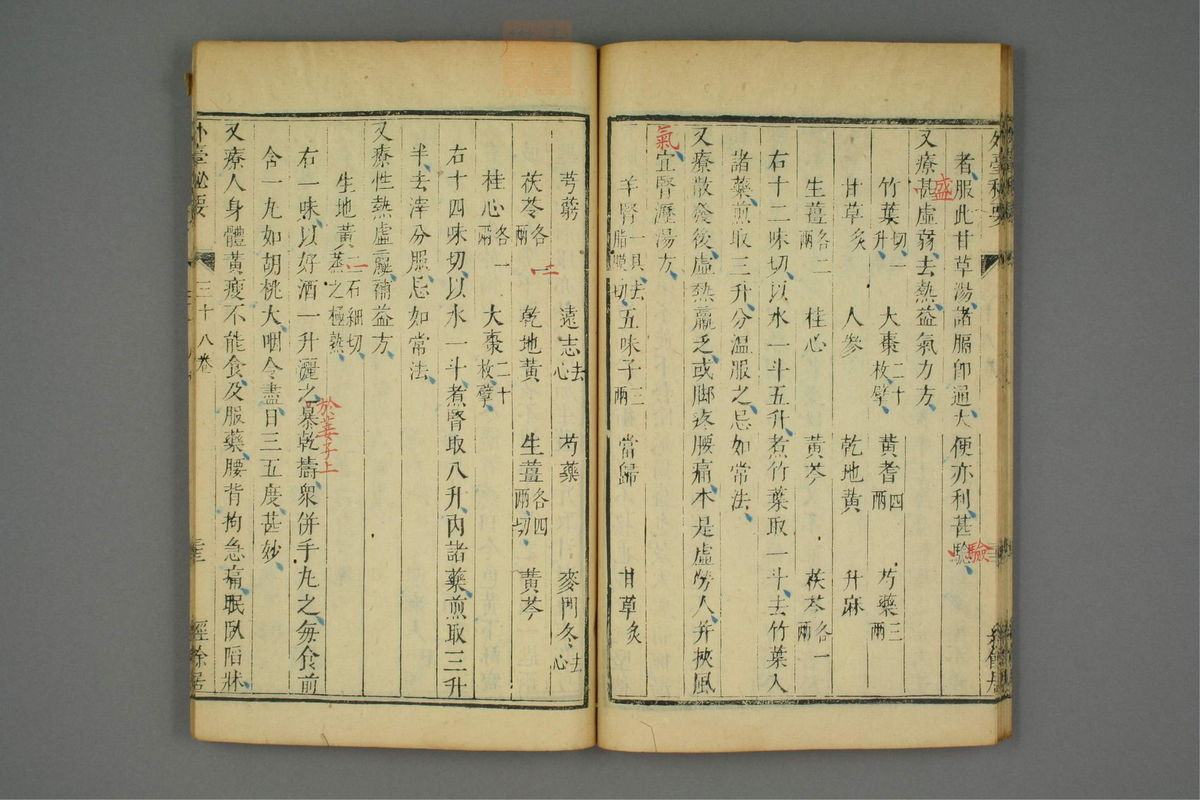 外臺秘要
者服此甘草湯諸膈即通大便亦利甚驗
驗
又療甚虛弱去熱益氣力方
盛
竹葉切一升 大棗二十枚擘 黃耆四兩 芍藥三兩
甘草炙 人參 乾地黃 升麻
生薑各二兩 桂心 黃芩 茯苓各一兩
右十二味切以水一斗五升煮竹葉取一斗去竹葉入
諸藥煎取三升分溫服之忌如常法
又療散發後虛熱羸乏或脚疼腰痛本是虛勞人并挾風
氣宜腎瀝湯方
羊腎一具去脂膜切 五味子三兩 當歸 甘草炙
芎藭 遠志去心 芍藥 麥門冬去心
茯苓各三兩 乾地黃 生薑各四兩切 黃芩
桂心各一兩 大棗二十枚擘
右十四味切以水一斗煮腎取八升內諸藥煎取三升
半去滓分服忌如常法
又療性熱虛羸補益方
生地黃二石細切蒸之極熟
右一味以好酒一升灑之暴乾擣衆併手丸之每食前
於姜子上
含一丸如胡桃大咽令盡日三五度甚妙
又療人身體黃瘦不能食及服藥腰背拘急痛眠臥陷牀
外臺秘要 三十八卷 經餘居